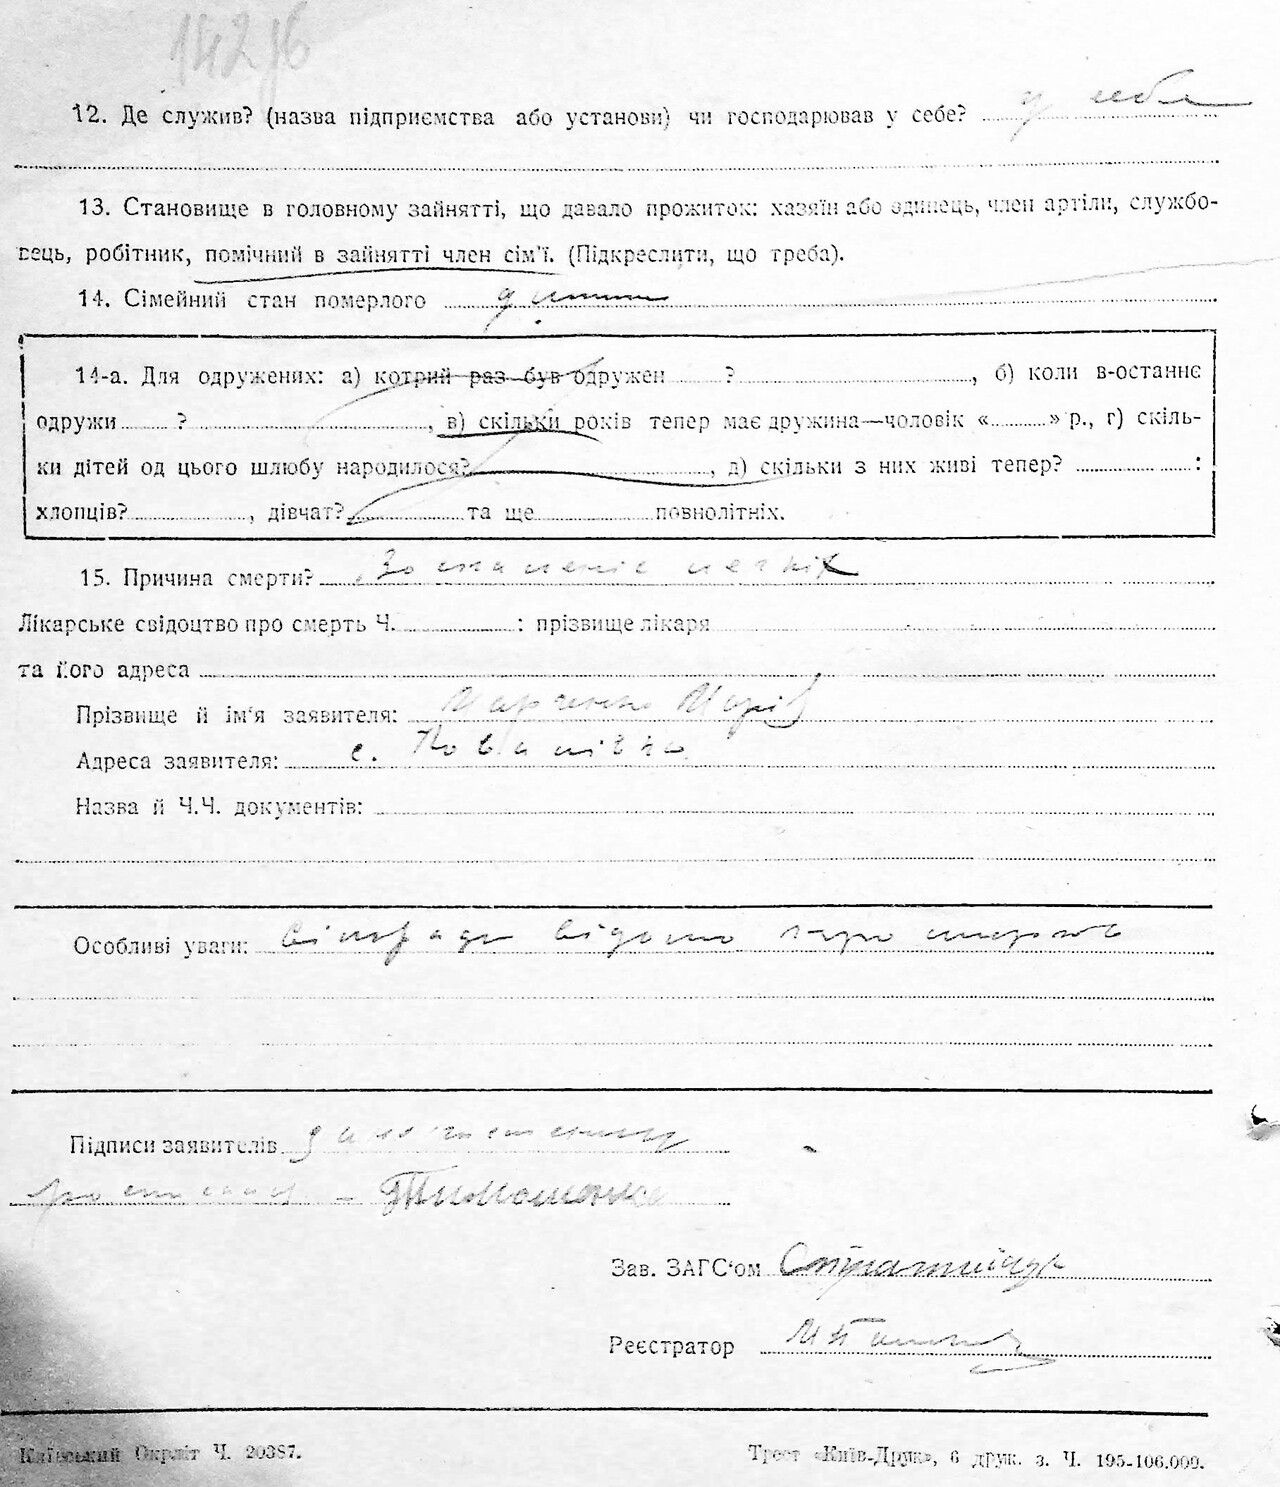 12. Де служив? (назва підприємства або установи) чи господарював у себе? у себе
13. Становище в головному зайнятті, що давало прожиток: хазяїн або одинець, член артіли, службо-
вець, робітник, помічний в зайнятті член сім'ї. (Підкреслити, що треба).
14. Сімейний стан померлого дитина
14-а. Для одружених: а) котрий раз був одружен ? , б) коли в-останнє
одружи ? , в) скільки років тепер має дружина—чоловік « » р., г) скіль-
ки дітей од цього шлюбу народилося? , д) скільки з них живі тепер? :
хлопців? , дівчат? та ще повнолітніх.
15. Причина смерти? Воспаленіе легкіх
Лікарське свідоцтво про смерть Ч. : прізвище лікаря
та його адреса
Прізвище й ім'я заявителя: Марченко Марія
Адреса заявителя: с.
Назва й Ч.Ч. документів:
Особливі уваги: Сільраді відомо про смерть
Підписи заявителів
Тимошенко
Зав. ЗАГС'ом
Реєстратор
Київський Окрліт Ч. 20387.
Трест «Київ-Друк», 6 друк. з. Ч. 195-106.000.